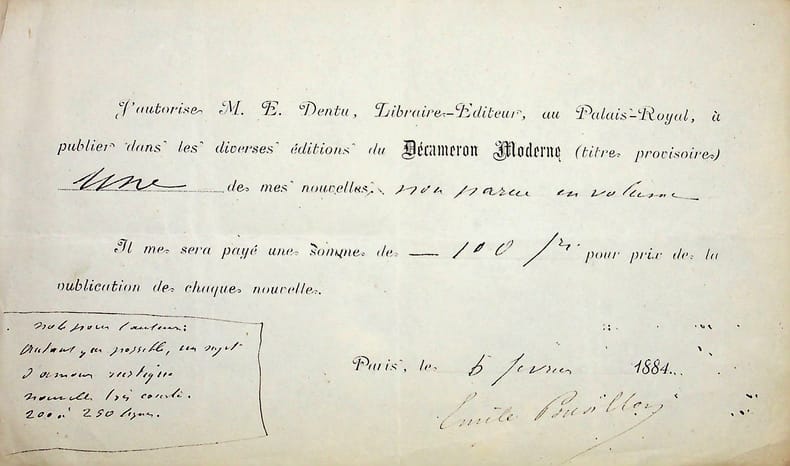 J'autorise M. E. Dentu, Libraire-Editeur, au Palais-Royal, à
publier dans les diverses éditions du Décameron Moderne (titre provisoire)
Une de mes nouvelles, non parue en volume
Il me sera payé une somme de — 100 fr. pour prix de la
publication de chaque nouvelle.
note pour l'auteur:
Autant que possible, un sujet
d'amour rustique
nouvelle très courte.
200 à 250 lignes.
Paris, le 5 février 1884.
Emile Pouvillon